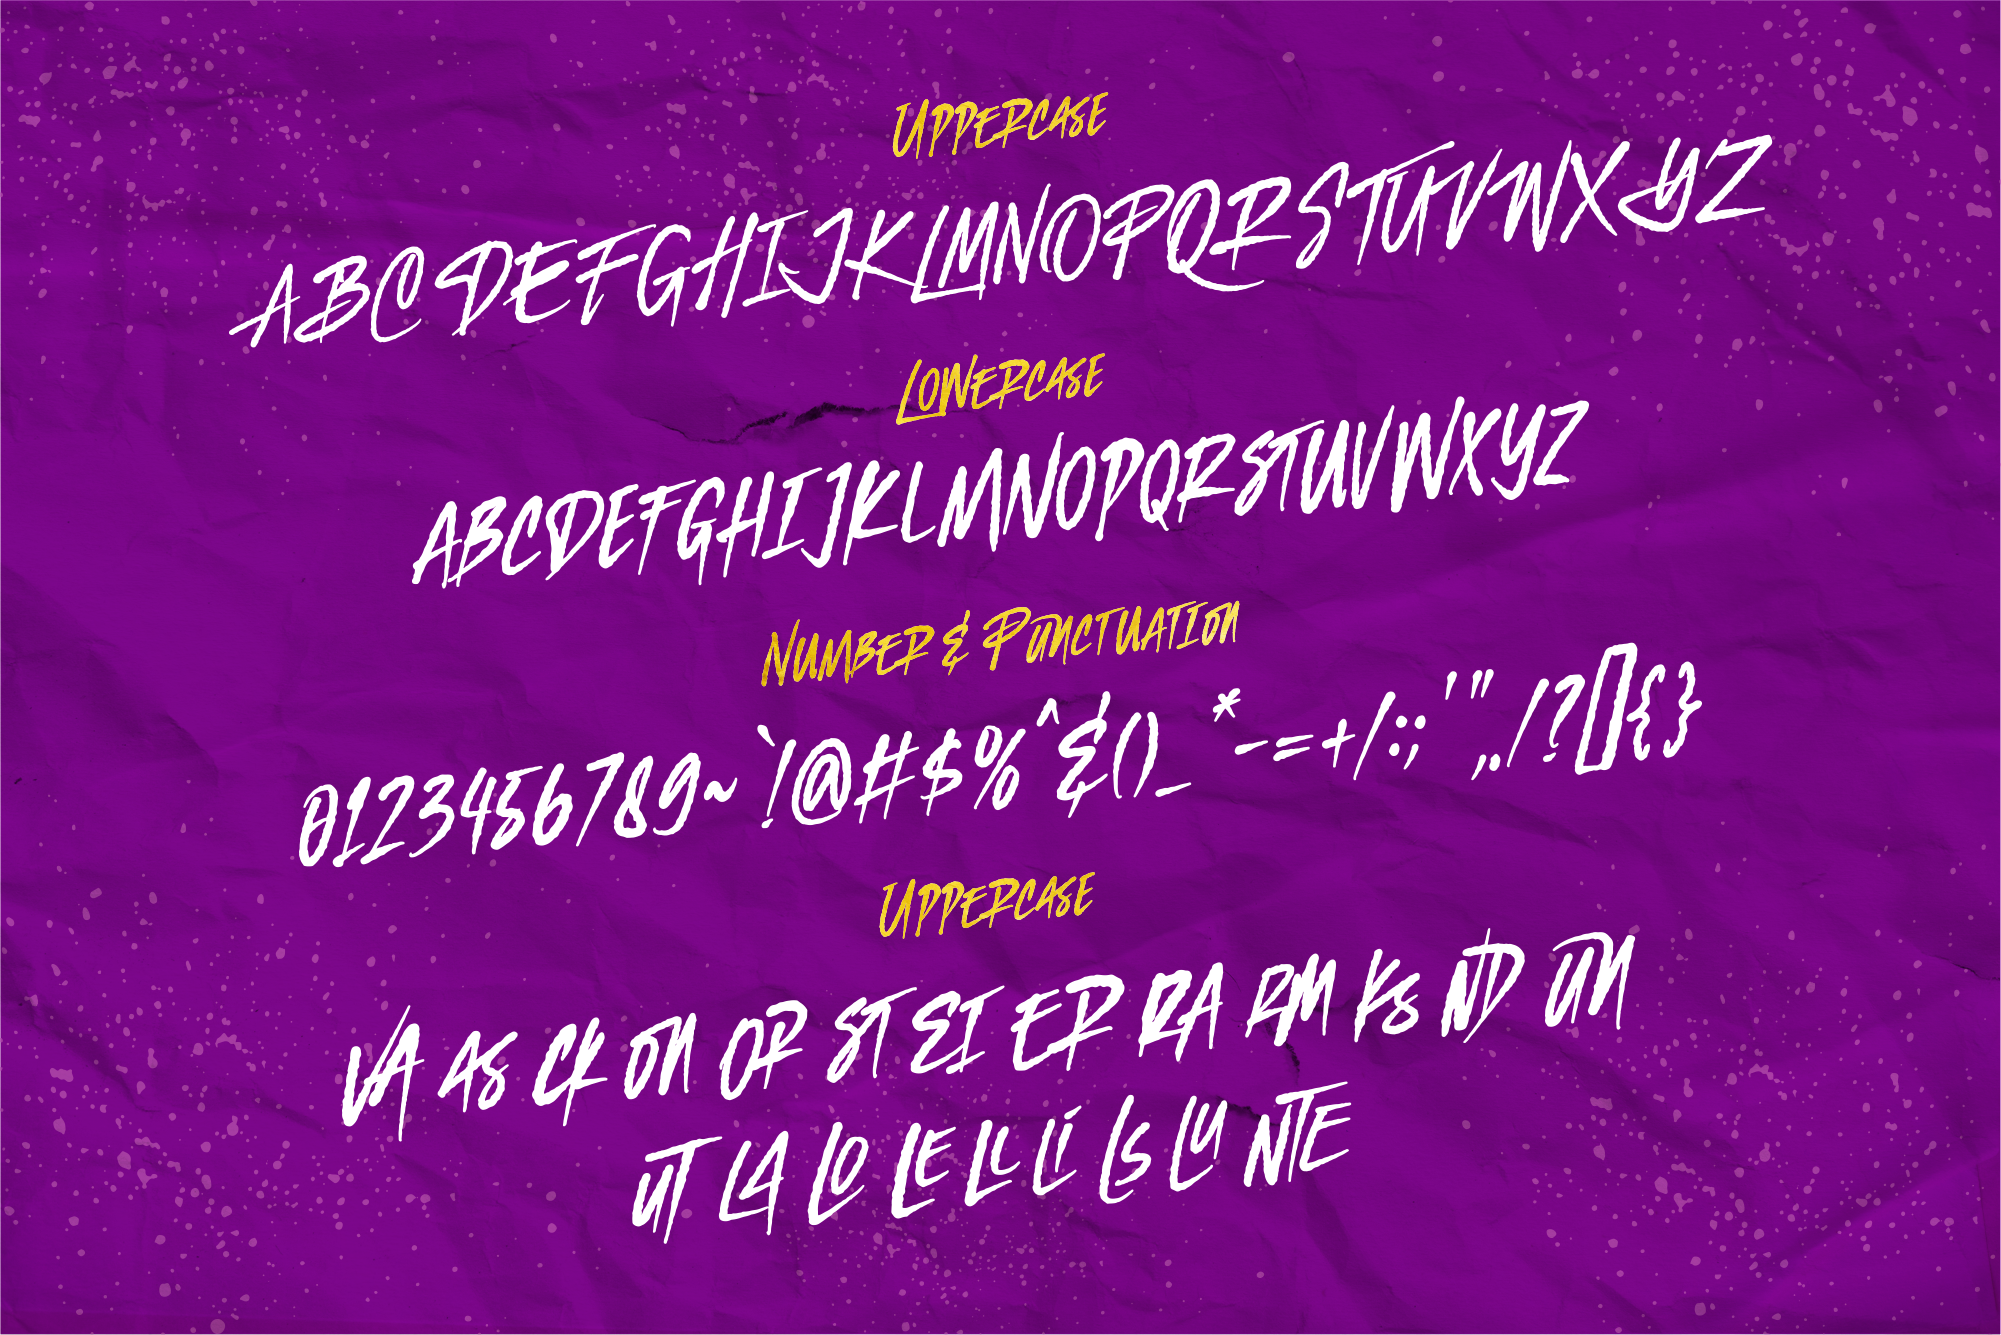 Uppercase
ABCDEFGHIJKLMNOPQRSTUVWXYZ
Lowercase
ABCDEFGHIJKLMNOPQRSTUVWXYZ
Number & Punctuation
0123456789~ `!@#$%^&()_ *-=+/:;'",./?[]{}
Uppercase
VA AS CK ON OR ST EI ER RA RM KS ND UN
UT LA LO LE LL LI LS LU NTE